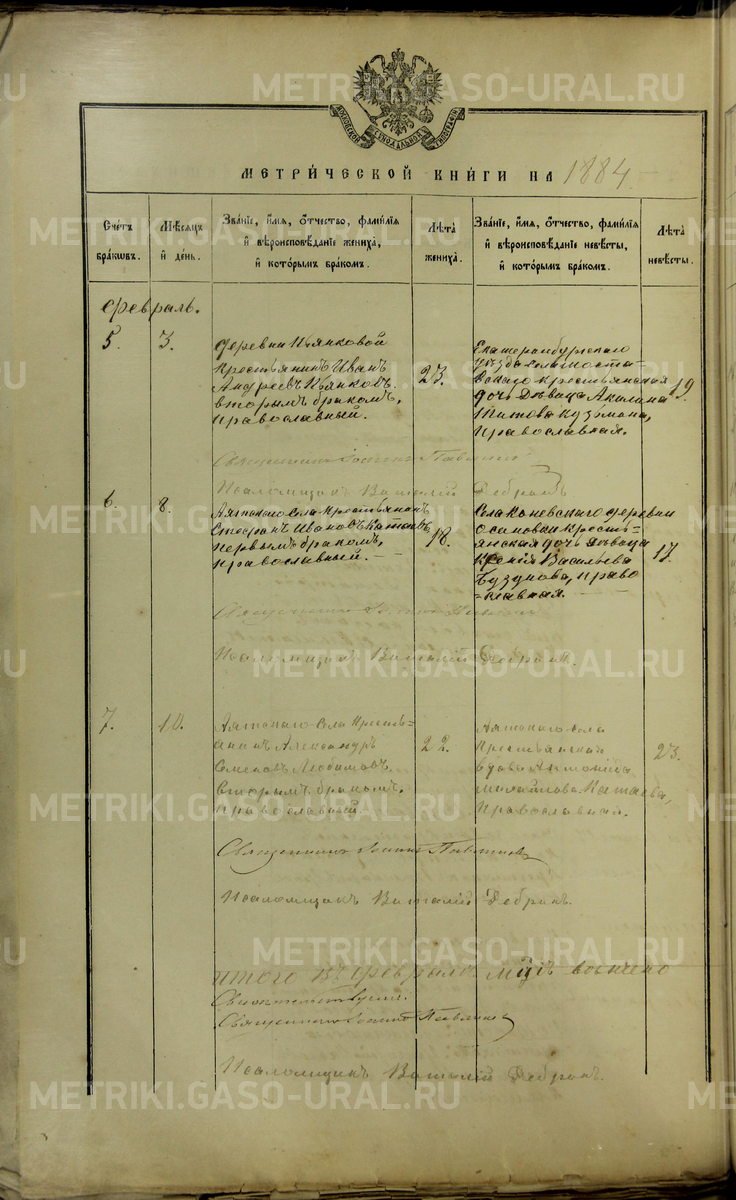 МЕТРИ́ЧЕСКОЙ КНИ́ГИ НА 1884
Сче́тъ бра́кωвъ.
Мѣ́сяцъ и҆ де́нь.
Зва́нїе, и҆́мя, ѻ҆́тчество, фами́лїя и҆ вѣроисповѣ́данїе жениха̀, и҆ кото́рымъ бра́комъ.
Лѣ́та жениха̀.
Зва́нїе, и҆́мя, ѻ҆́тчество, фами́лїя и҆ вѣроисповѣ́данїе невѣ́сты, и҆ кото́рымъ бра́комъ.
Лѣ́та невѣ́сты.
Февраль.
5.
3.
Деревни Пьянковой
крестьянинъ Иванъ
Андреевъ Пьянковъ.
вторымъ бракомъ,
православный.
23.
Екатеринбургскаго
уѣзда
крестьянская
дочь дѣвица Акилина
Титова Кузмина,
православная.
19.
Священникъ Іоаннъ
Псаломщикъ Виталій Дебринъ
6.
8.
Аятскаго села крестьянинъ
Стефанъ Ивановъ Катаевъ
первымъ бракомъ,
православный.
18.
Села Коневскаго деревни
Осиновки кресть=
янская дочь дѣвица
Ксенія Васильева
право
=славная.
17.
Священникъ Іоаннъ
Псаломщикъ Виталій Дебринъ.
7.
10.
Аятскаго села кресть=
янинъ Александръ
Семеновъ Любимовъ.
вторымъ бракомъ.
православный.
22.
Аятскаго села
крестьянская
вдова Антонида
Михайлова Катаева,
православная.
23.
Священникъ Іоаннъ
Псаломщикъ Виталій Дебринъ.
Итого въ Февралѣ мцѣ
Священникъ Іоаннъ
Псаломщикъ Виталій Дебринъ.
METRIKI.GASO-URAL.RU